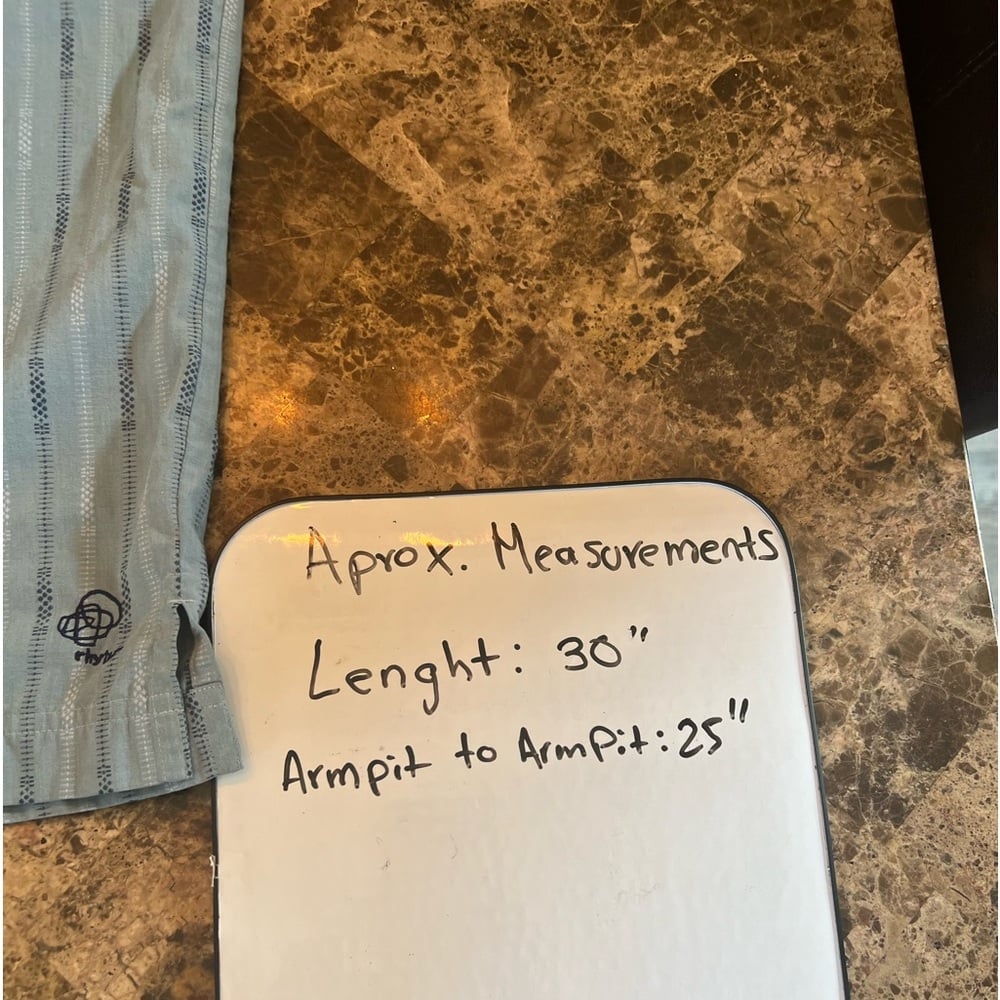 Aprox. Measurements
Lenght: 30"
Armpit to Armpit: 25"